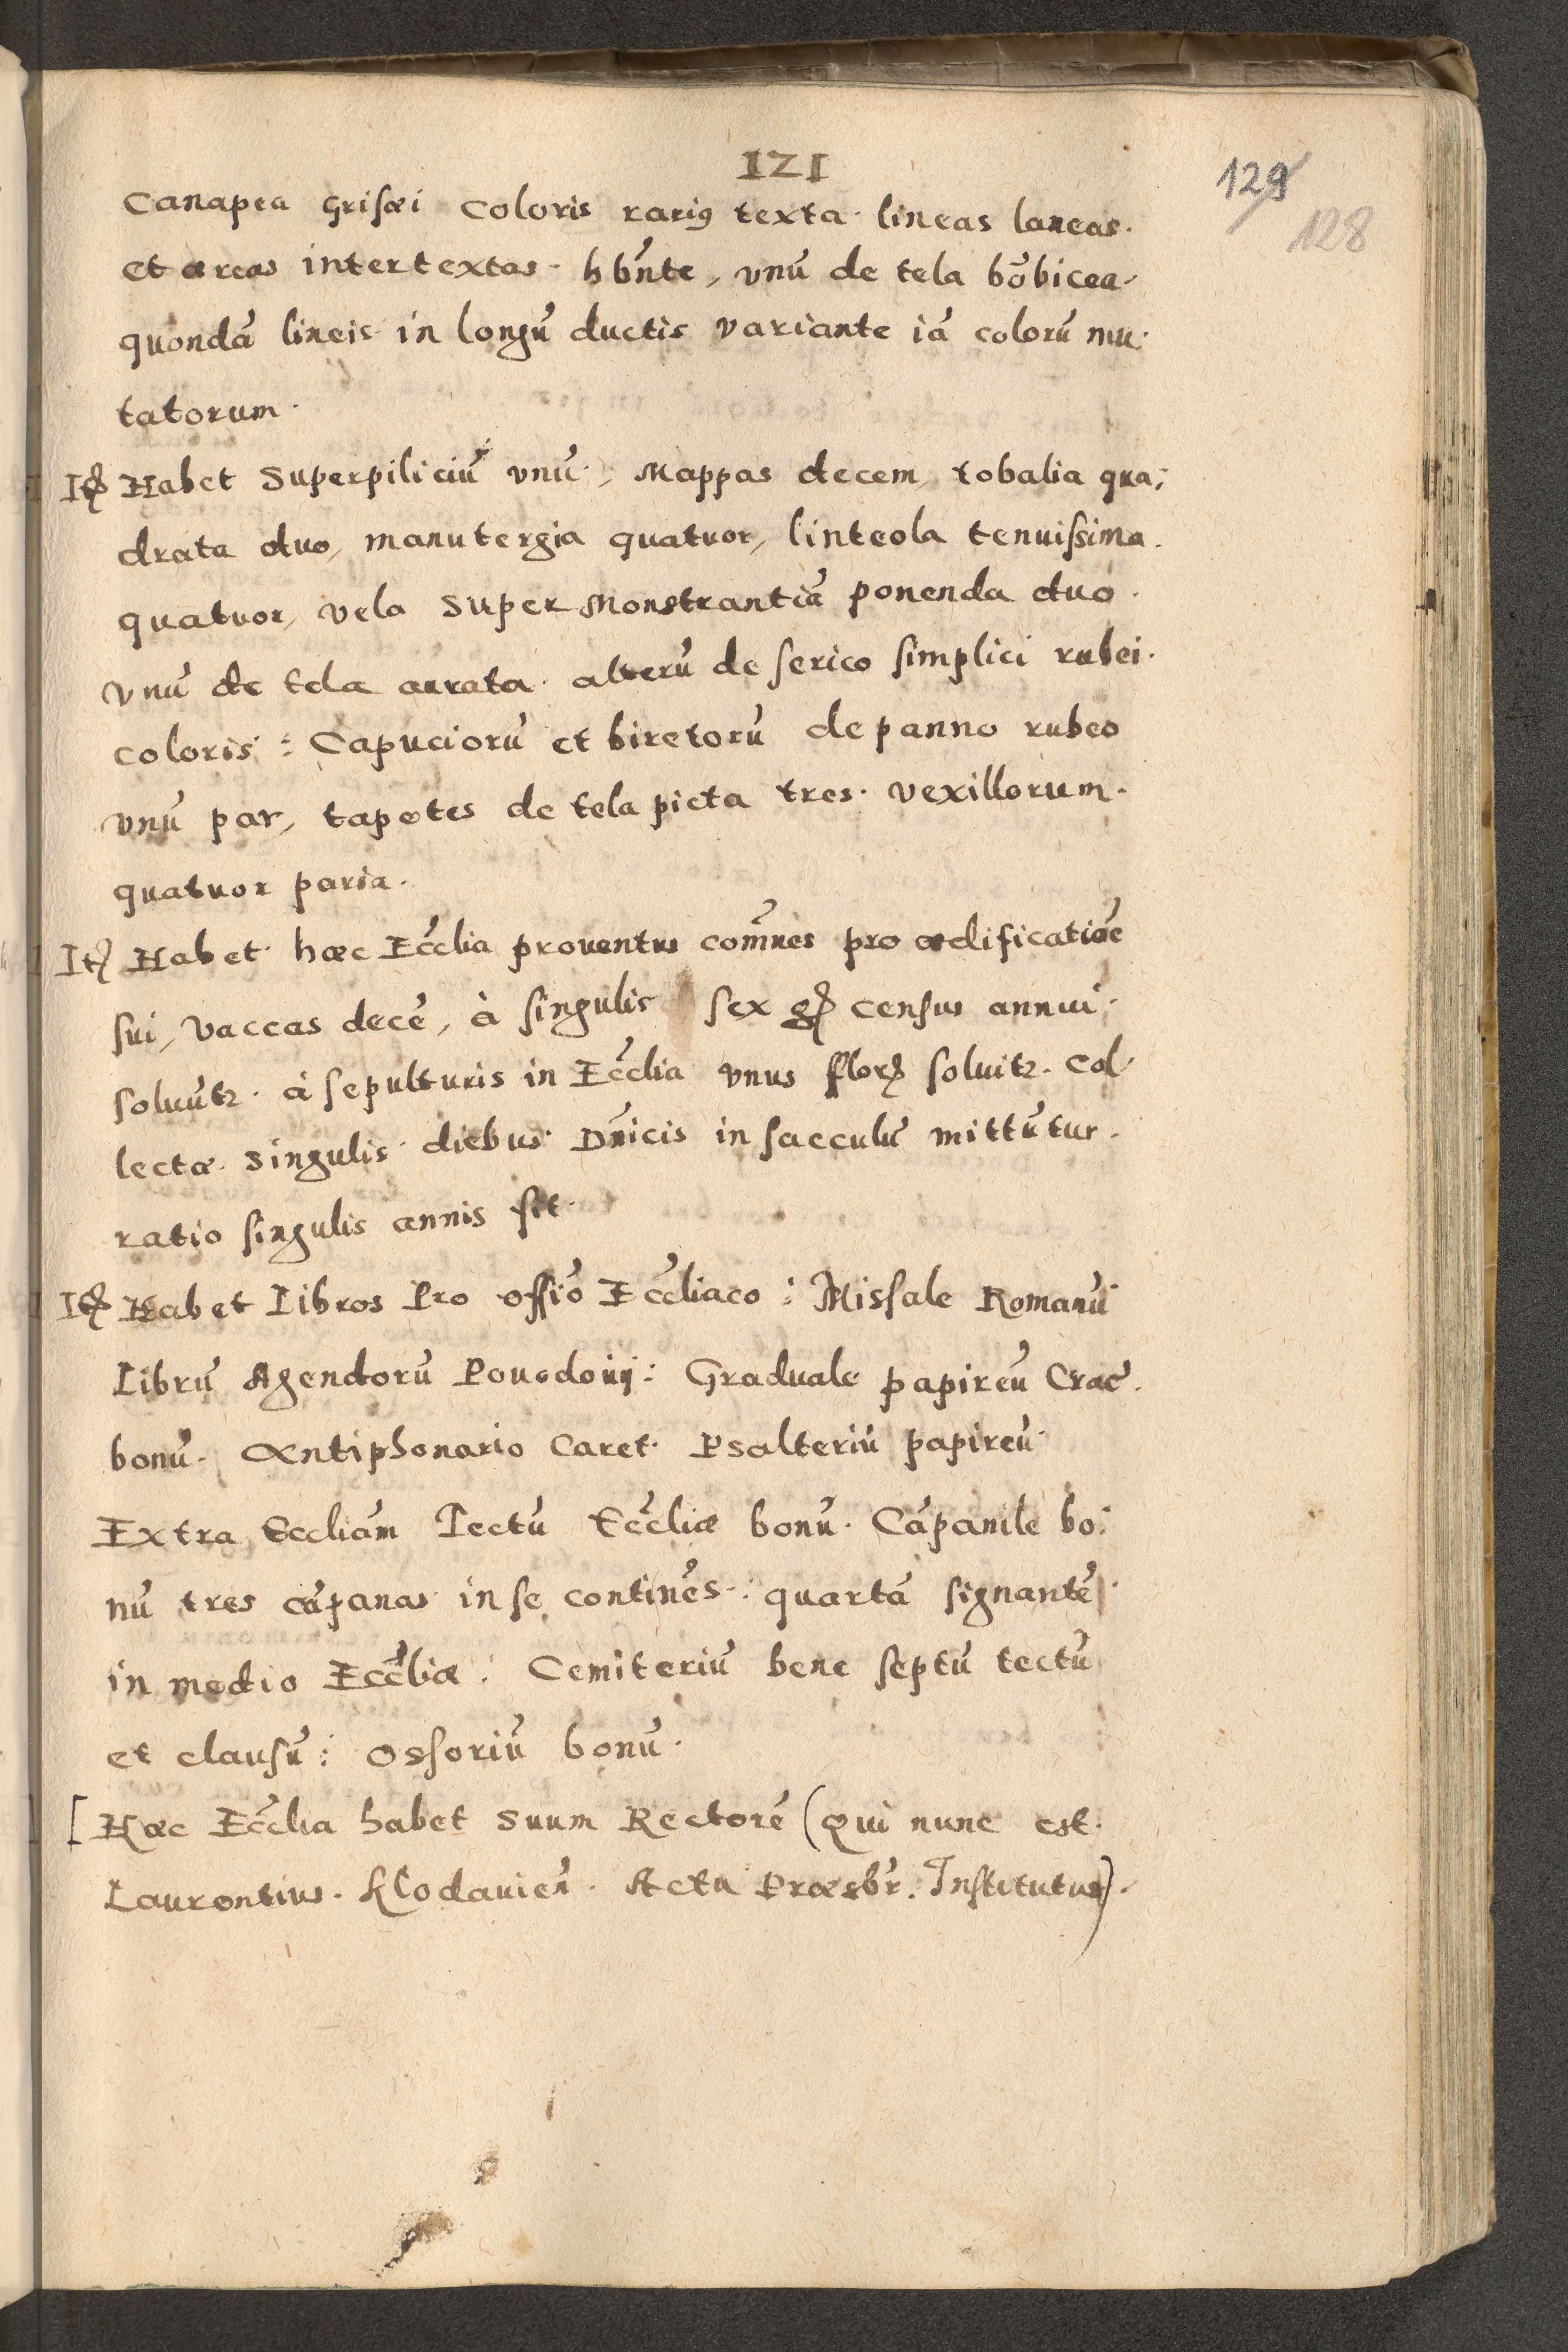 121
129
128
Canapea grisæi coloris rariꝯ texta lineas laneas.
et æreas intertextas hb̃nte, vnũ de tela bõbicea
quondã lineis in longũ ductis variante iã colorũ mu:
tatorum.
Itꝫ Habet Superpiliciũ vnũ, Mappas decem, tobalia qua:
drata duo, manutergia quatuor, linteola tenuissima.
quatuor, vela super Monstrantiã ponenda duo.
vnũ de tela aurata. alterũ de serico simplici rubei.
coloris: Capuciorũ et biretorũ de panno rubeo
vnũ par, tapetes de tela picta tres. vexillorum.
quatuor paria.
Itꝫ Habet hæc Eccl̃ia prouentus com̃nes pro ædificatiõe
sui, vaccas decẽ, à singulis sex gꝫ census annui.
soluũtꝛ. à sepulturis in Eccl̃ia vnus florꝫ soluitꝛ. Col
lectæ singulis diebus Dñicis in sacculũ mittũtur.
ratio singulis annis fit.
Itꝫ Habet Libros Pro offiõ Eccl̃iaco: Missale Romanũ
Librũ Agendorũ Pouodouij: Graduale papireũ Crac̃.
bonũ. Antiphonario caret. Psalteriũ papireũ.
Extra Eccliãm Tectũ Eccl̃iæ bonũ. Cãpanile bo:
nũ tres cãpanas in se continẽs: quartã signantẽ
in medio Eccl̃iæ: Cemiteriũ bene septũ tectũ
et clausũ: ossoriũ bonũ.
[Hæc Eccl̃ia habet suum Rectorẽ (qui nunc est.
Laurentius. Klodauieñ. Actu Præsbr̃. Institutus).